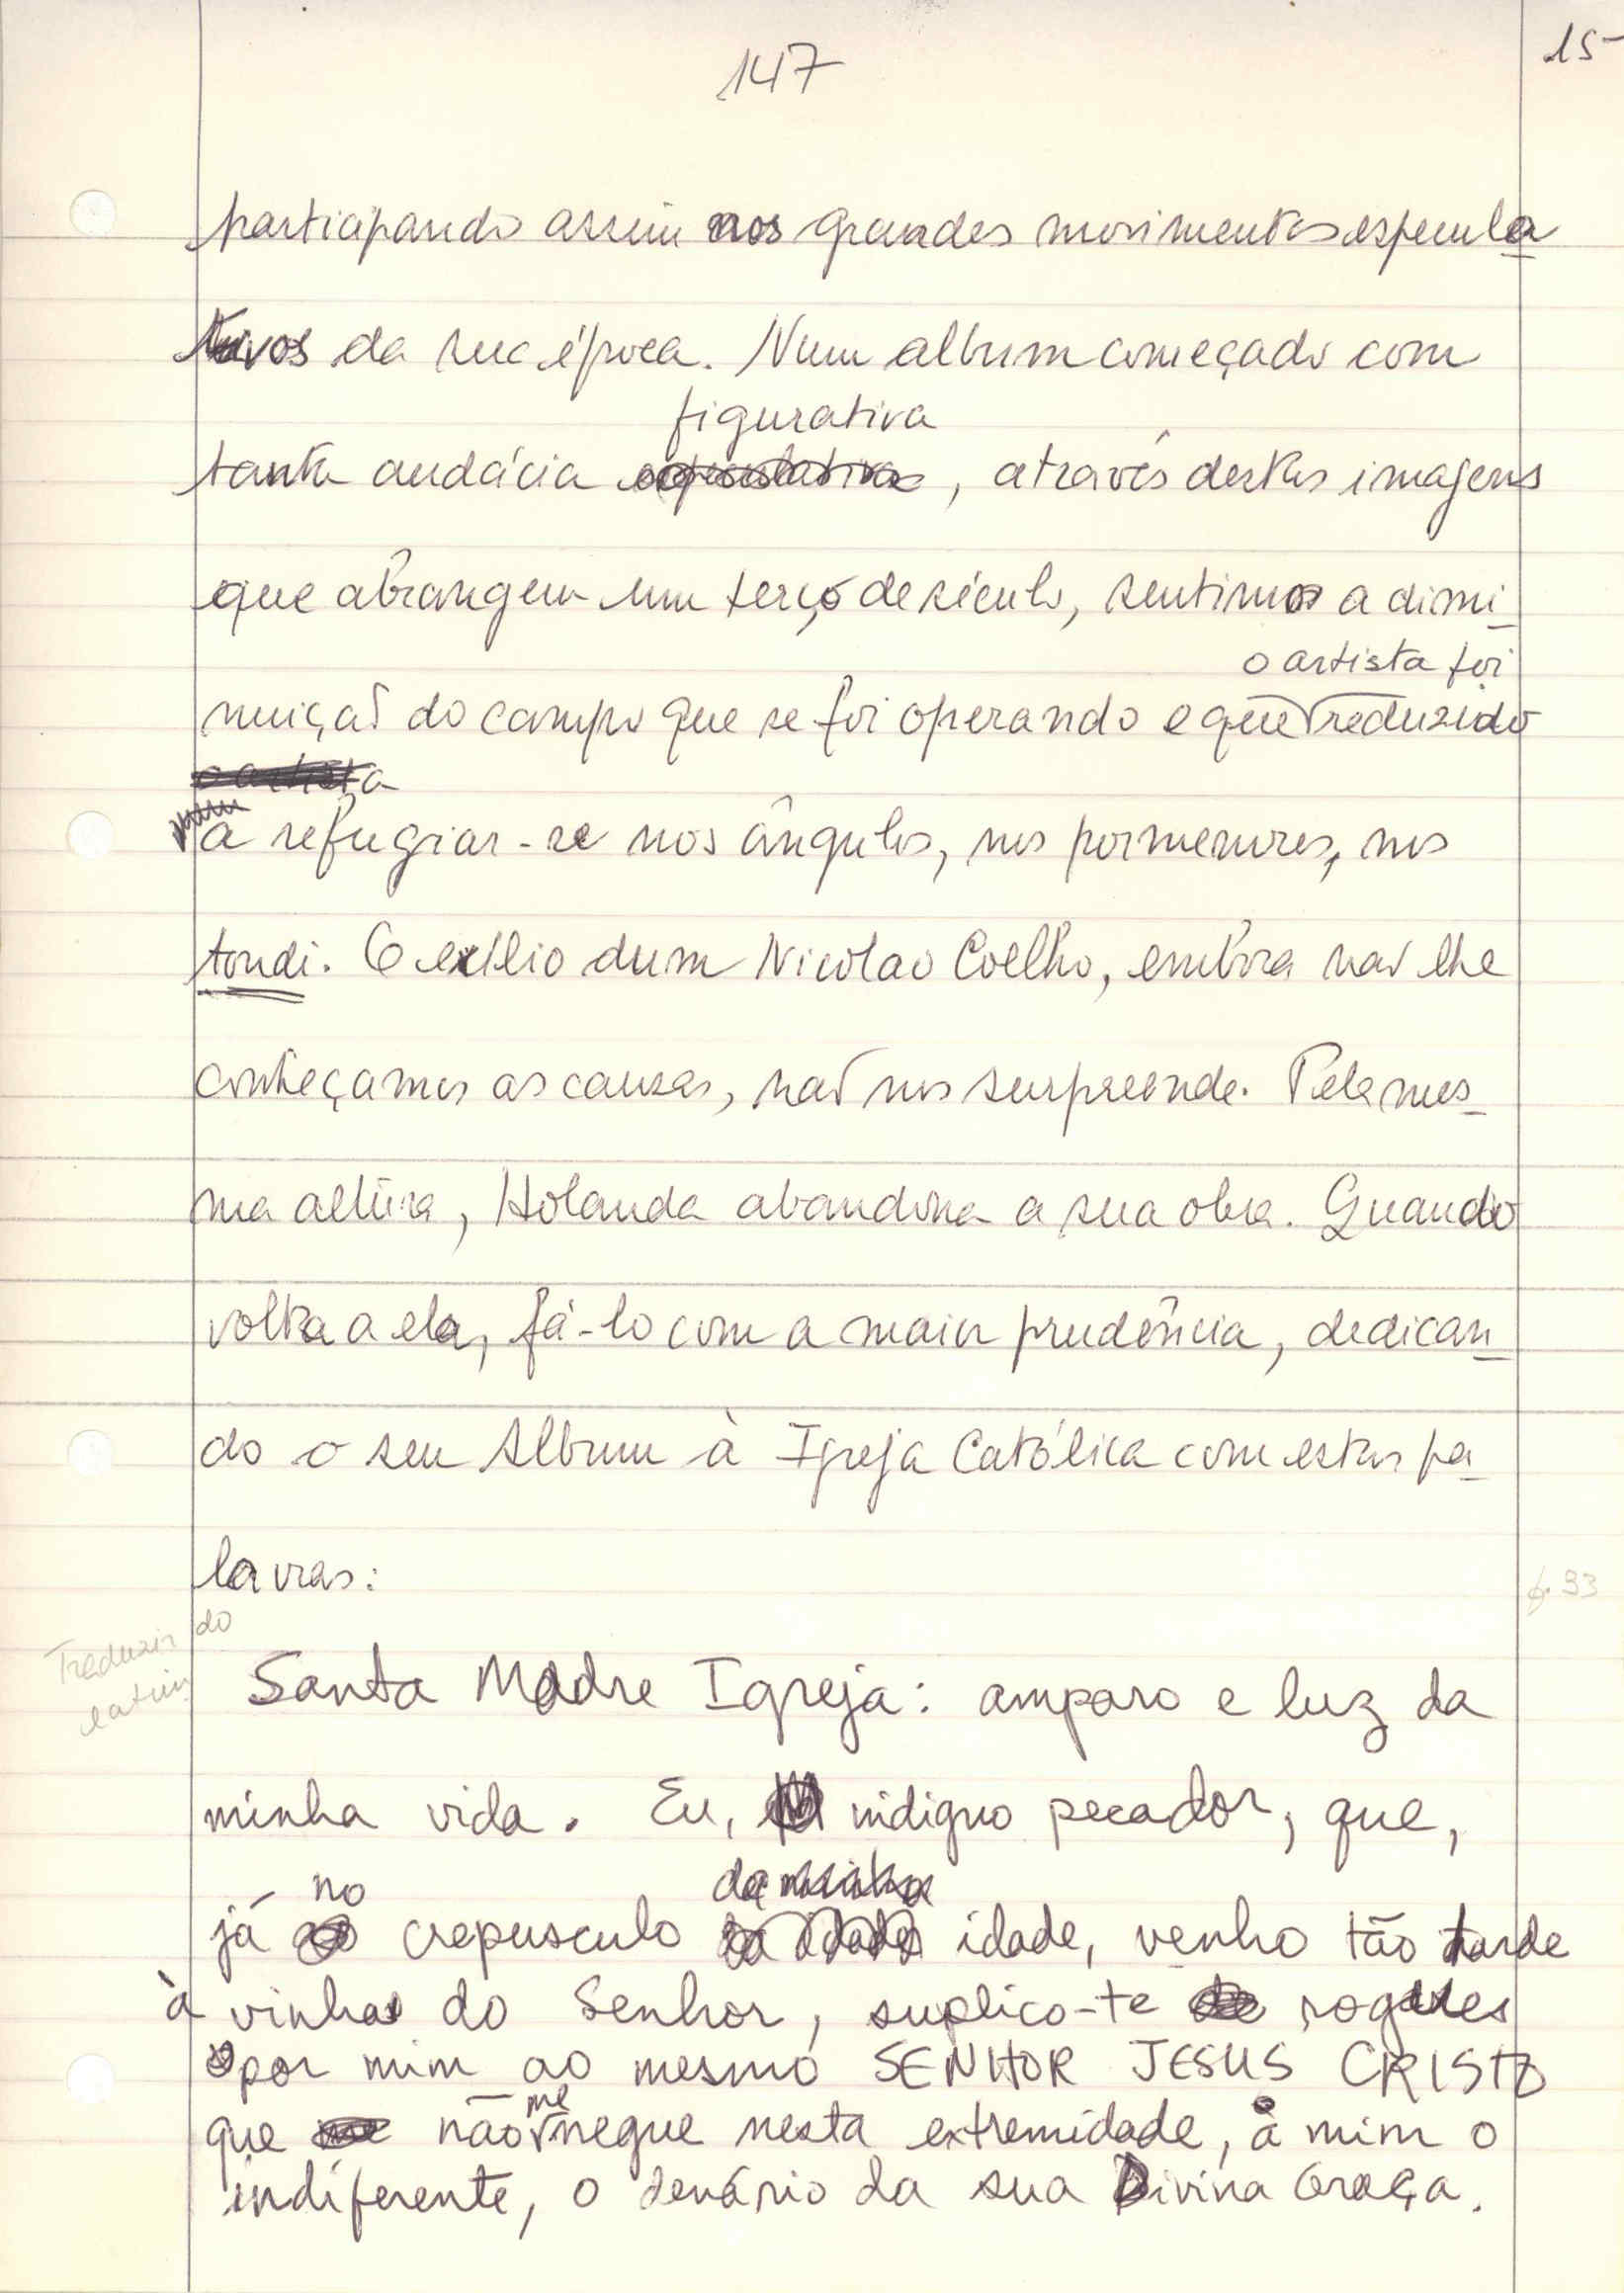 147
15
participando assim nos grandes movimentos especula
tivos da sua época. Num album começado com
figurativa
tanta audácia , através destas imagens
que abrangem um terço de século, sentimos a dimi
o artista foi
nuição do campo que se foi operando e que reduzido
a refugiar-se nos ângulos, nos pormenores, nos
tondi. O exílio dum Nicolao Coelho, embora não lhe
conheçamos as causas, não nos surpreende. Pela mes
ma altura, Holanda abandona a sua obra. Quando
volta a ela, fá-lo com a maior prudência, dedican
do o seu Album à Igreja Católica com estas pa
lavras:
p. 93
Traduzir do
latim
Santa Madre Igreja: amparo e luz da
minha vida. Eu, indigno pecador, que,
no da minha
já crepusculo idade, venho tão tarde
à vinha do Senhor, suplico-te rogues
por mim ao mesmo SENHOR JESUS CRISTO
me
que não negue nesta extremidade, a mim o
indiferente, o denário da sua Divina Graça.